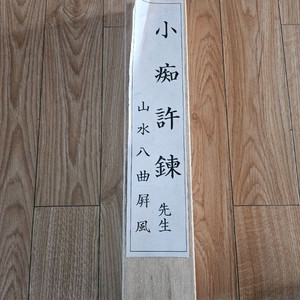 小痴許鍊先生
山水八曲屛風